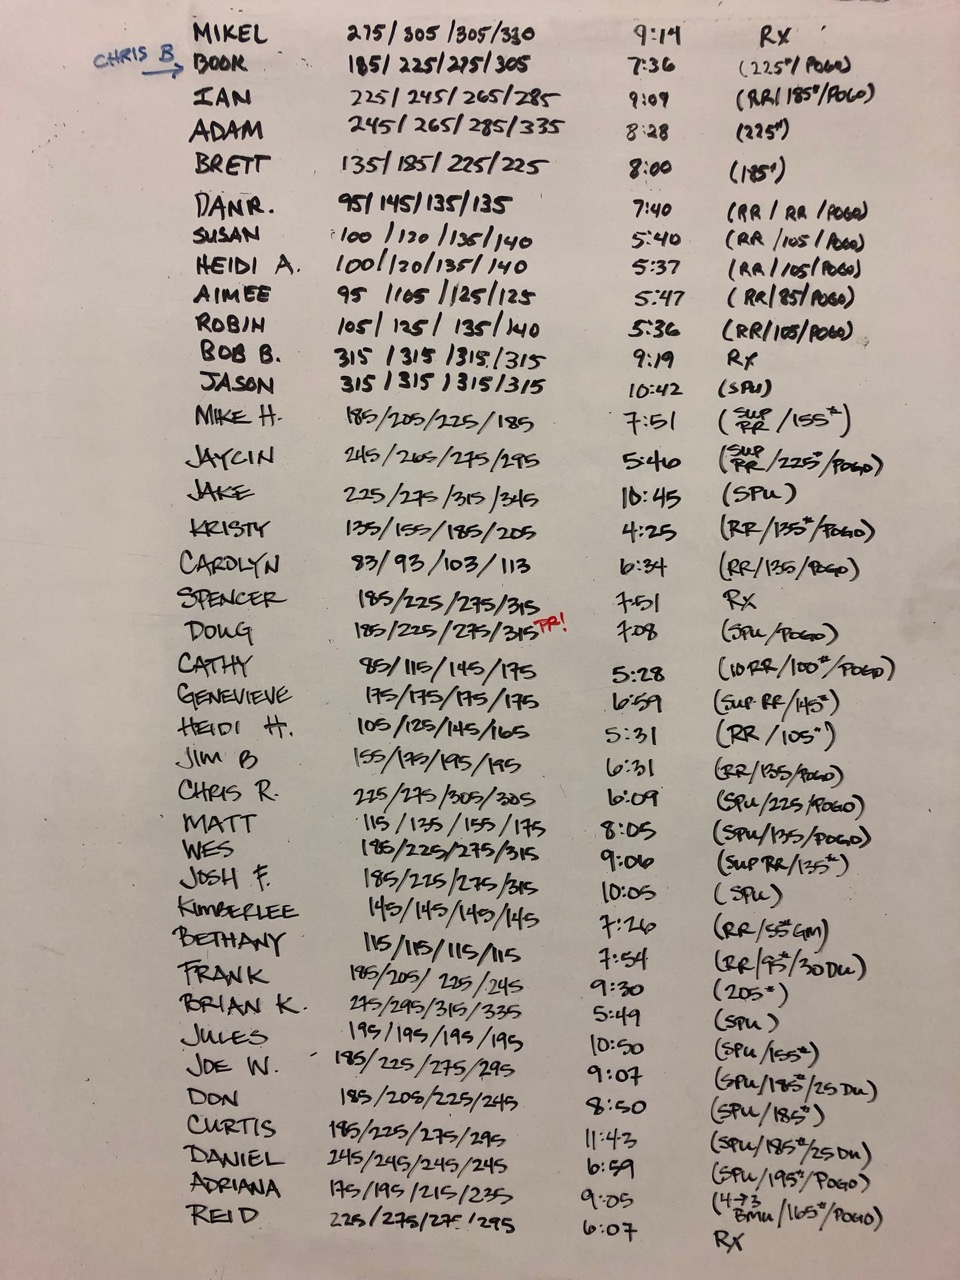 MIKEL 275/305/305/330 9:14 RX
CHRIS B → BOOK 185/225/275/305 7:36 (225#/POGO)
IAN 225/245/265/285 9:09 (RR/185#/POGO)
ADAM 245/265/285/335 8:28 (225#)
BRETT 135/185/225/225 8:00 (185#)
DANR. 95/145/135/135 7:40 (RR/RR/POGO)
SUSAN 100/120/135/140 5:40 (RR/105/POGO)
HEIDI A. 100/120/135/140 5:37 (RR/105/POGO)
AIMEE 95/105/125/125 5:47 (RR/85/POGO)
ROBIN 105/125/135/140 5:36 (RR/105/POGO)
BOB B. 315/315/315/315 9:19 RX
JASON 315/315/315/315 10:42 (SPU)
MIKE H. 185/205/225/185 7:51 (SUP RR/155#)
JAYCIN 245/265/275/295 5:46 (SUP RR/225#/POGO)
JAKE 225/275/315/345 10:45 (SPU)
KRISTY 135/155/185/205 4:25 (RR/135#/POGO)
CAROLYN 83/93/103/113 6:34 (RR/135/POGO)
SPENCER 185/225/275/315 7:51 RX
DOUG 185/225/275/315 PR! 7:08 (SPU/POGO)
CATHY 85/115/145/175 5:28 (10RR/100#/POGO)
GENEVIEVE 175/175/175/175 6:59 (SUP RR/145#)
HEIDI H. 105/125/145/165 5:31 (RR/105#)
JIM B 155/175/195/195 6:31 (RR/135/POGO)
CHRIS R. 225/275/305/305 6:09 (SPU/225/POGO)
MATT 115/135/155/175 8:05 (SPU/135/POGO)
WES 185/225/275/315 9:06 (SUP RR/135#)
JOSH F. 185/225/275/315 10:05 (SPU)
KIMBERLEE 145/145/145/145 7:26 (RR/55# GM)
BETHANY 115/115/115/115 7:54 (RR/95#/30DU)
FRANK 185/205/225/245 9:30 (205#)
BRIAN K. 275/295/315/335 5:49 (SPU)
JULES 195/195/195/195 10:50 (SPU/155#)
JOE W. 185/225/275/295 9:07 (SPU/185#/25DU)
DON 185/205/225/245 8:50 (SPU/185#)
CURTIS 185/225/275/295 11:43 (SPU/185#/25DU)
DANIEL 245/245/245/245 6:59 (SPU/195#/POGO)
ADRIANA 175/195/215/235 9:05 (4→3 BMU/165#/POGO)
REID 225/275/275/295 6:07 RX